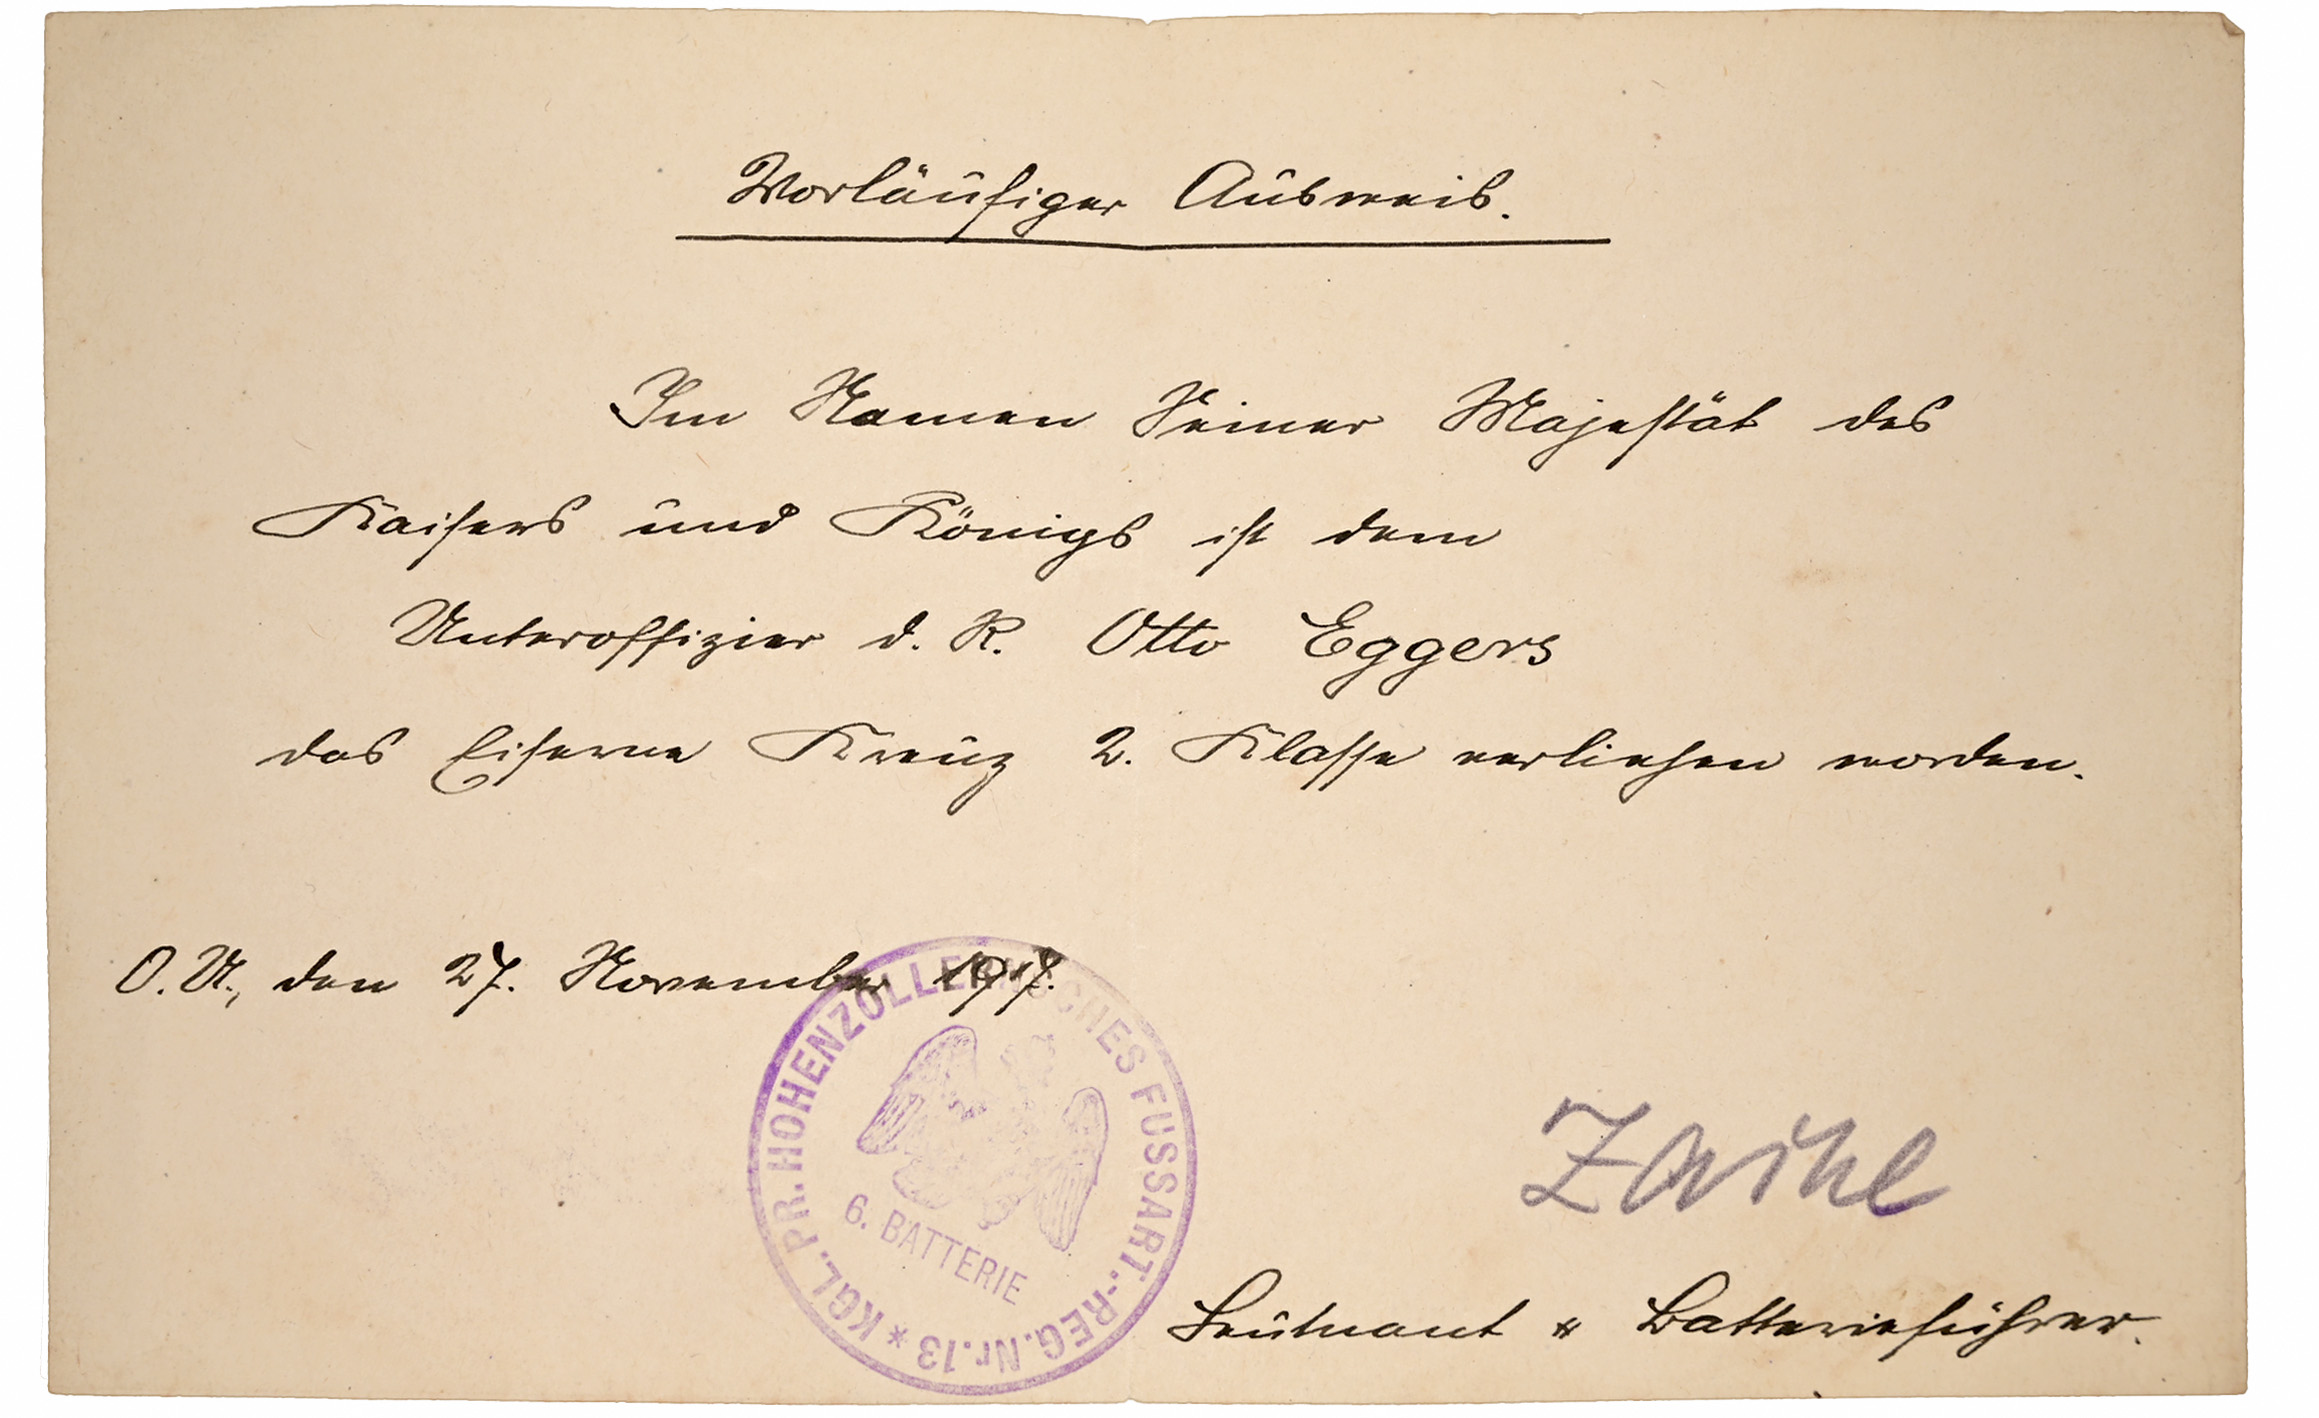 Vorläufiger Ausweis.
Im Namen Seiner Majestät des
Kaisers und Königs ist dem
Unteroffizier d. R. Otto Eggers
das Eiserne Kreuz 2. Klasse verliehen worden.
O. U., den 27. November 1917.
KGL. PR. HOHENZOLLERNSCHES FUSSART.-REG. Nr. 13 *
6. BATTERIE
Leutnant u. Batterieführer.